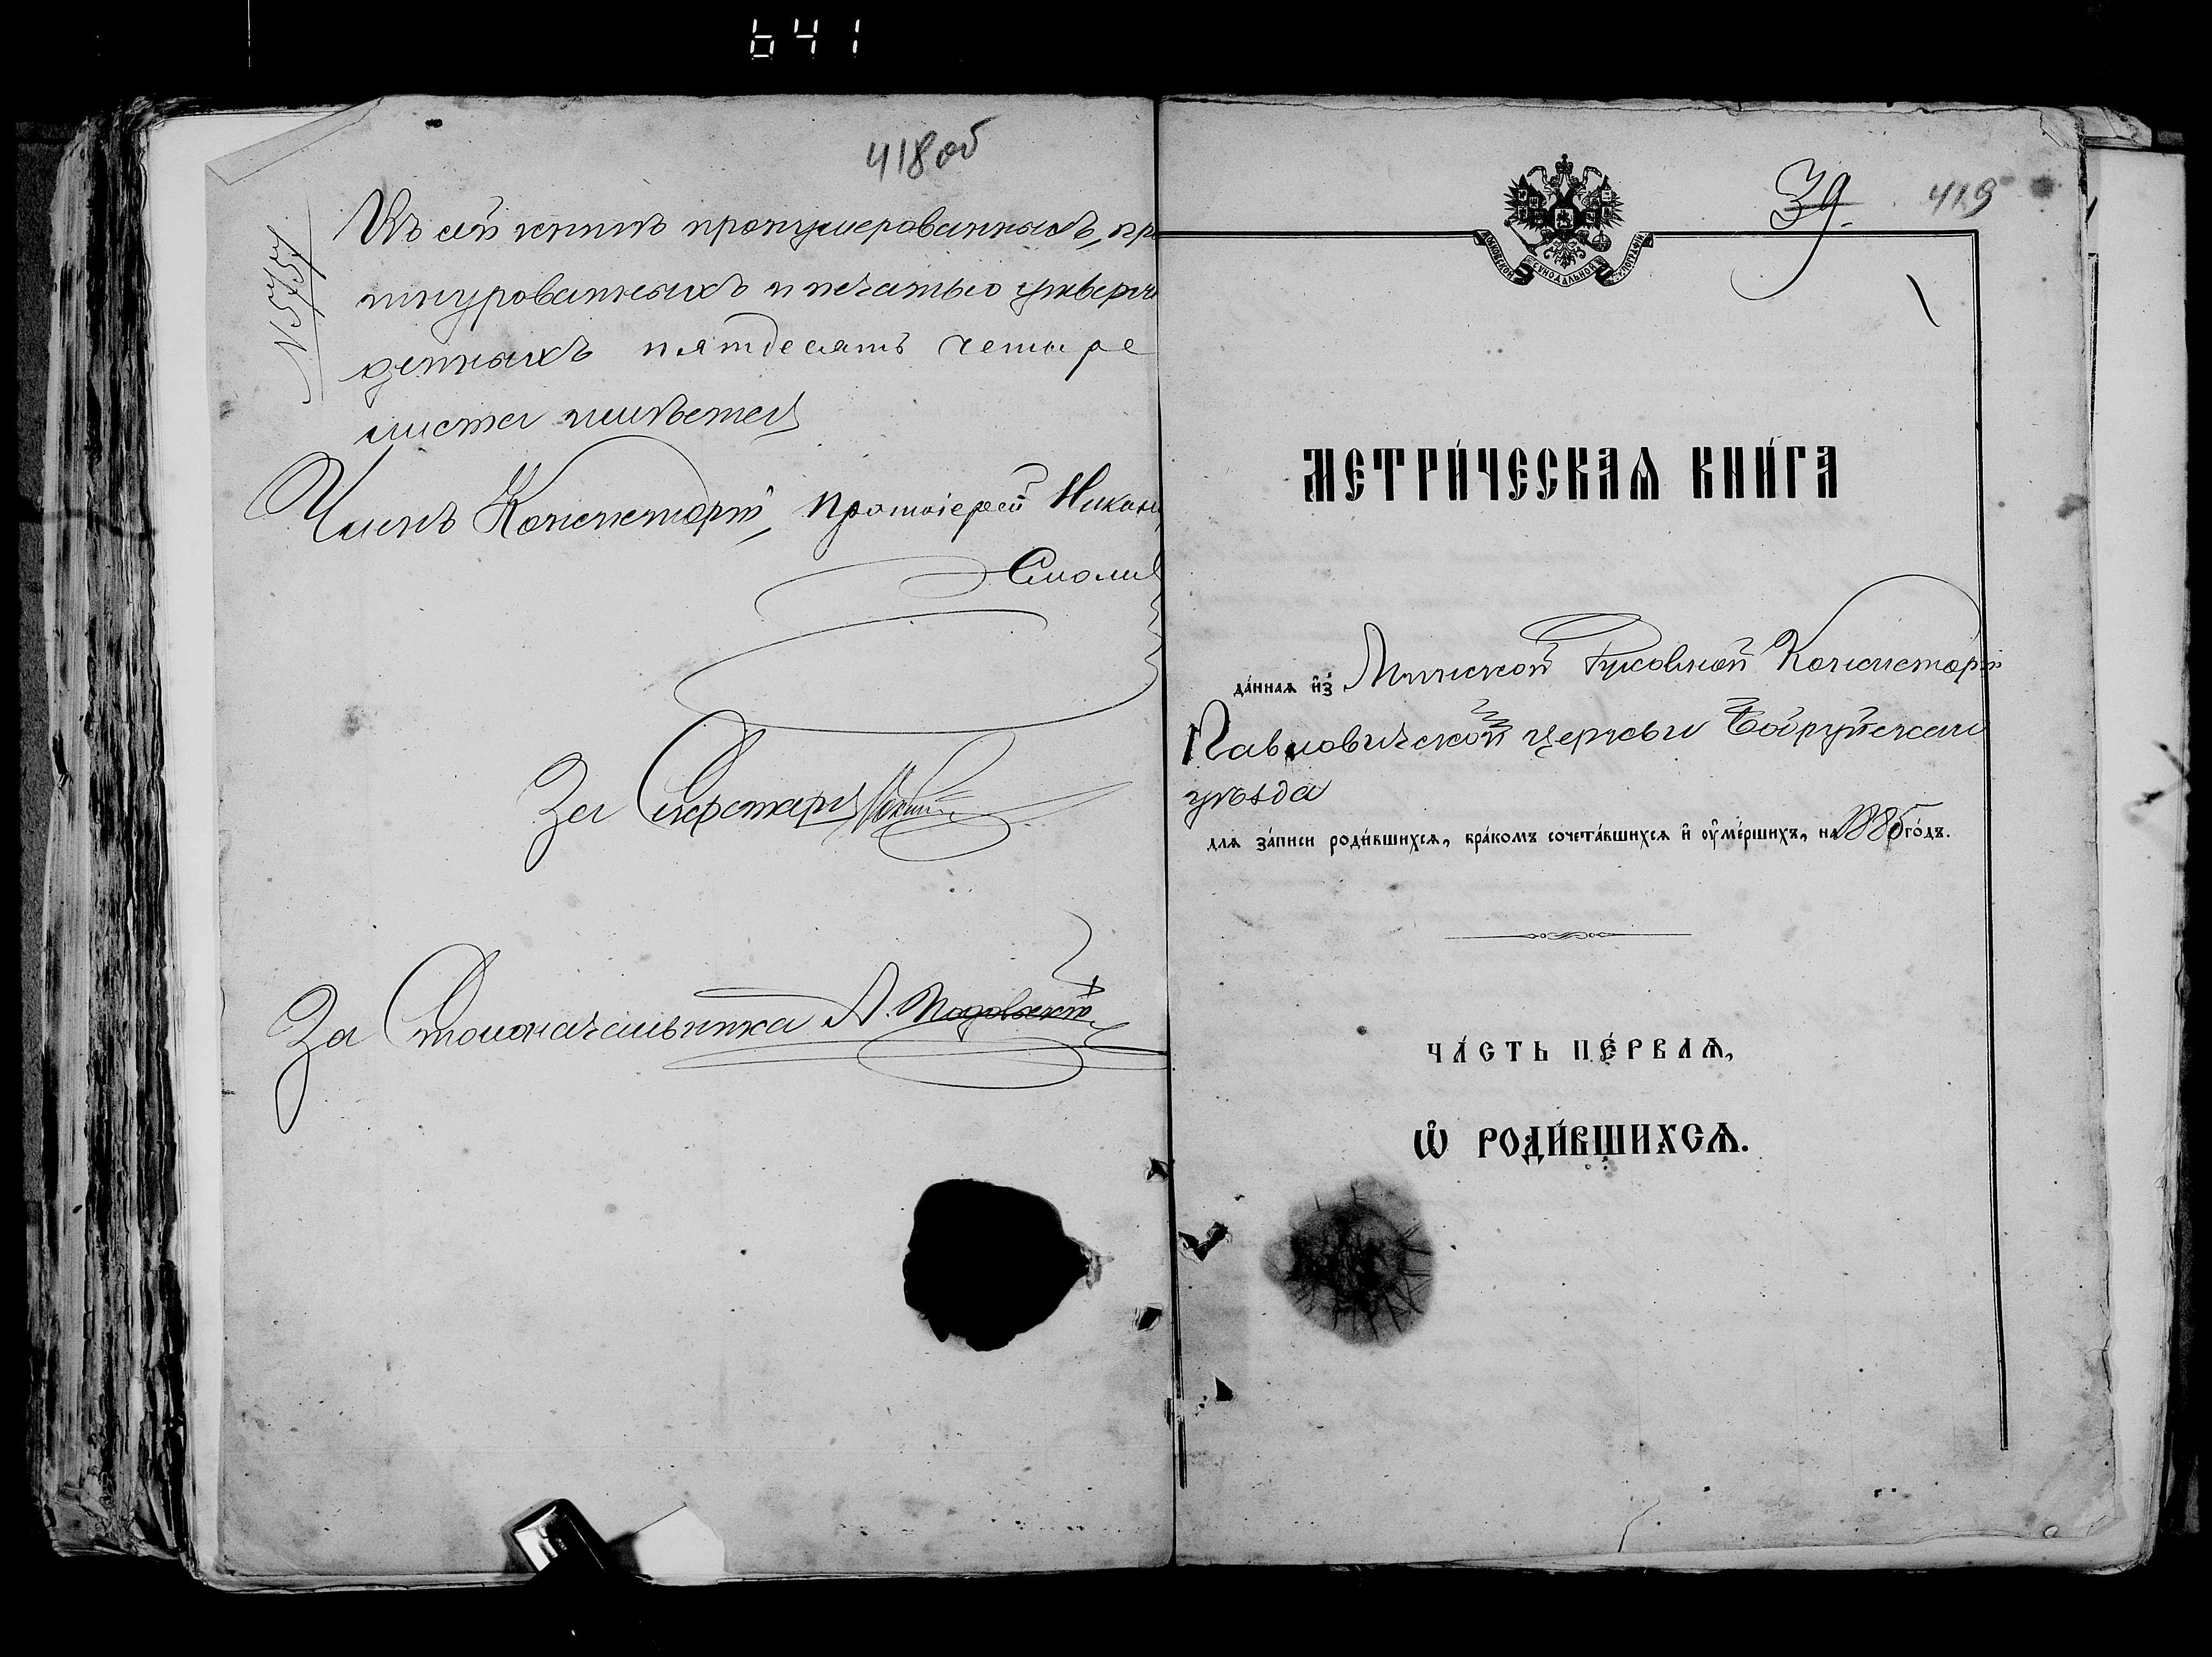 641
418 об
N 5757
Въ сей книгѣ пронумерованныхъ, пр
шнурованныхъ и печатью утверж
денныхъ пятдесятъ четыре
листа имѣется
Членъ Консисторіи, Протоіерей
Смолич
За Секретаря
За Столоначальника А.
39.
419
МОСКОВСКОЙ СѴНОДАЛЬНОЙ ТИПОГРАФІИ
МЕТРИ́ЧЕСКАѦ КНИ́ГА
да́ннаѧ и҆з̾ Минской Духовной Консисторіи
Павловичской церкви Бобруйскаго
уѣзда
длѧ за́писи роди́вшихсѧ, бра́комъ сочета́вшихсѧ и҆ ᲂу҆ме́ршихъ, на 1885 го́дъ.
ЧА́СТЬ ПЕ́РВАѦ,
Ѽ РОДИ́ВШИХСѦ.